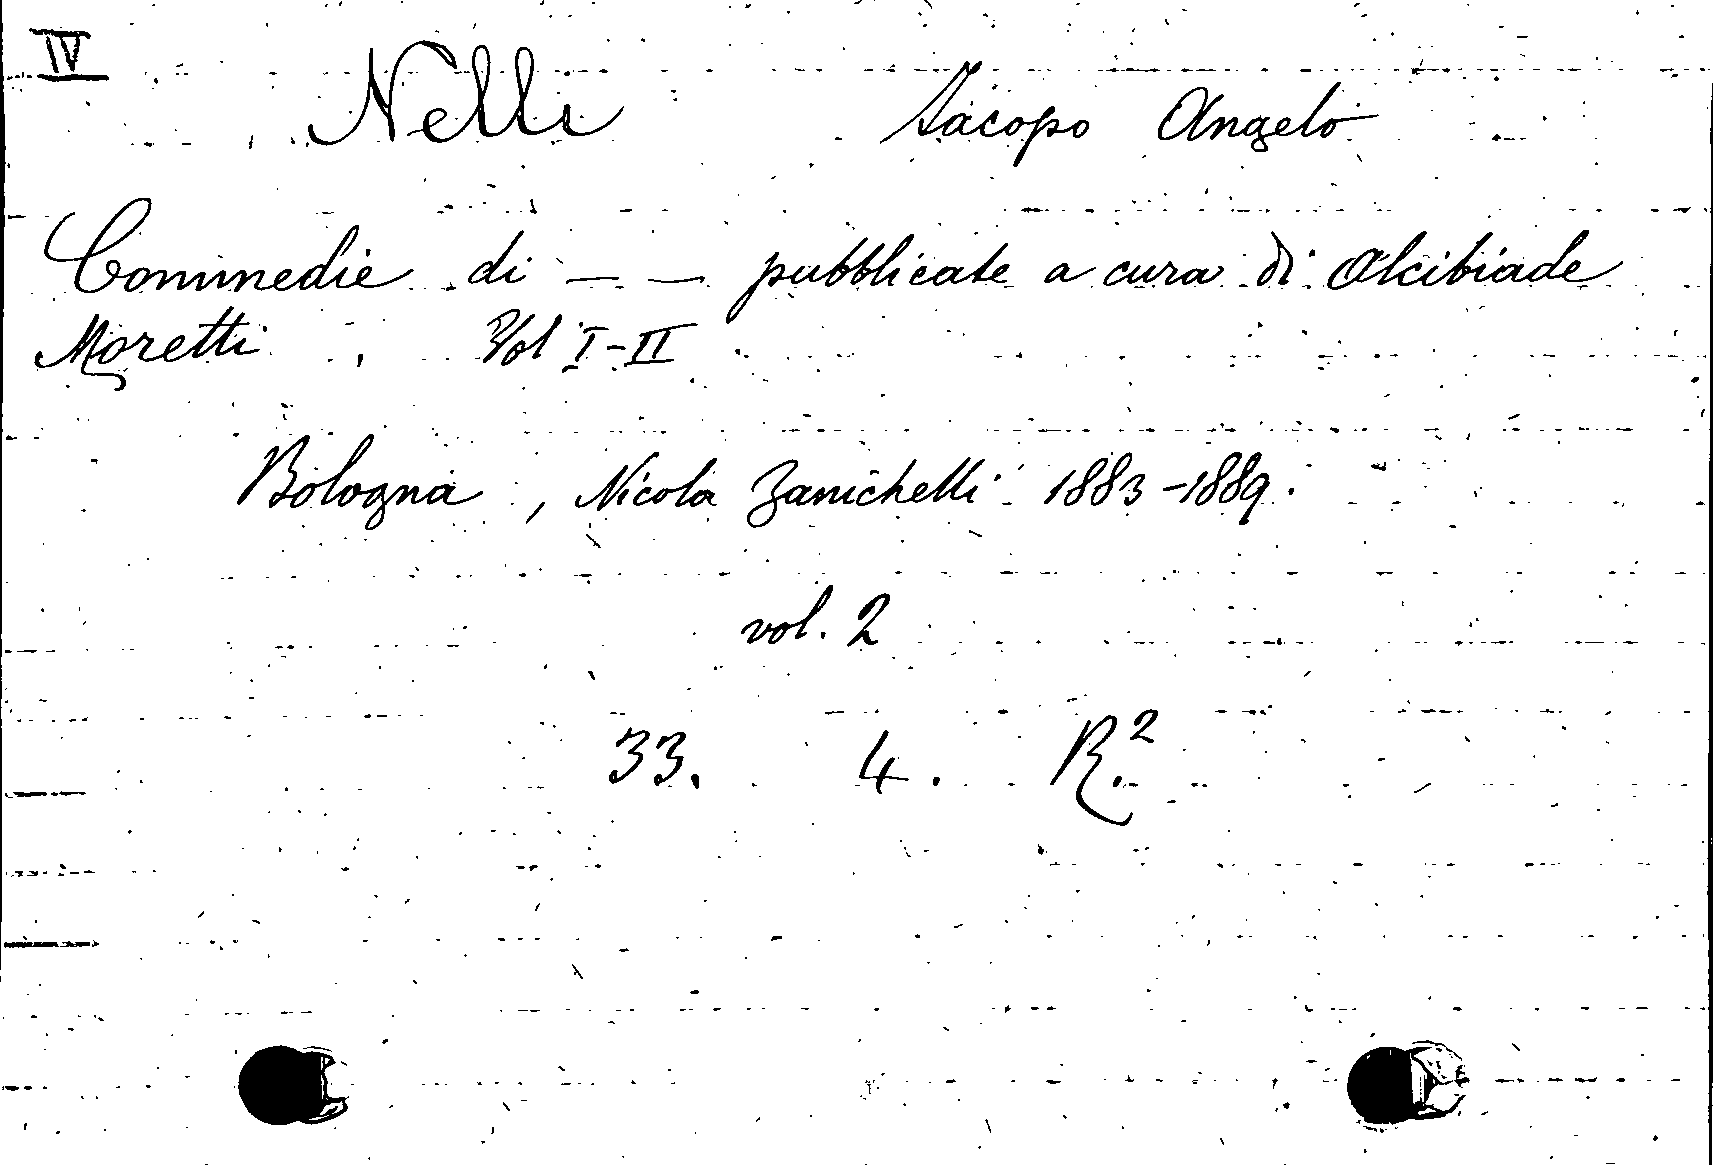 IV
Nelli Jacopo Angelo
Commedie di — — pubblicate a cura di Alcibiade
Moretti. Vol I-II
Bologna, Nicola Zanichelli 1883-1889.
vol. 2
33. 4. R.²